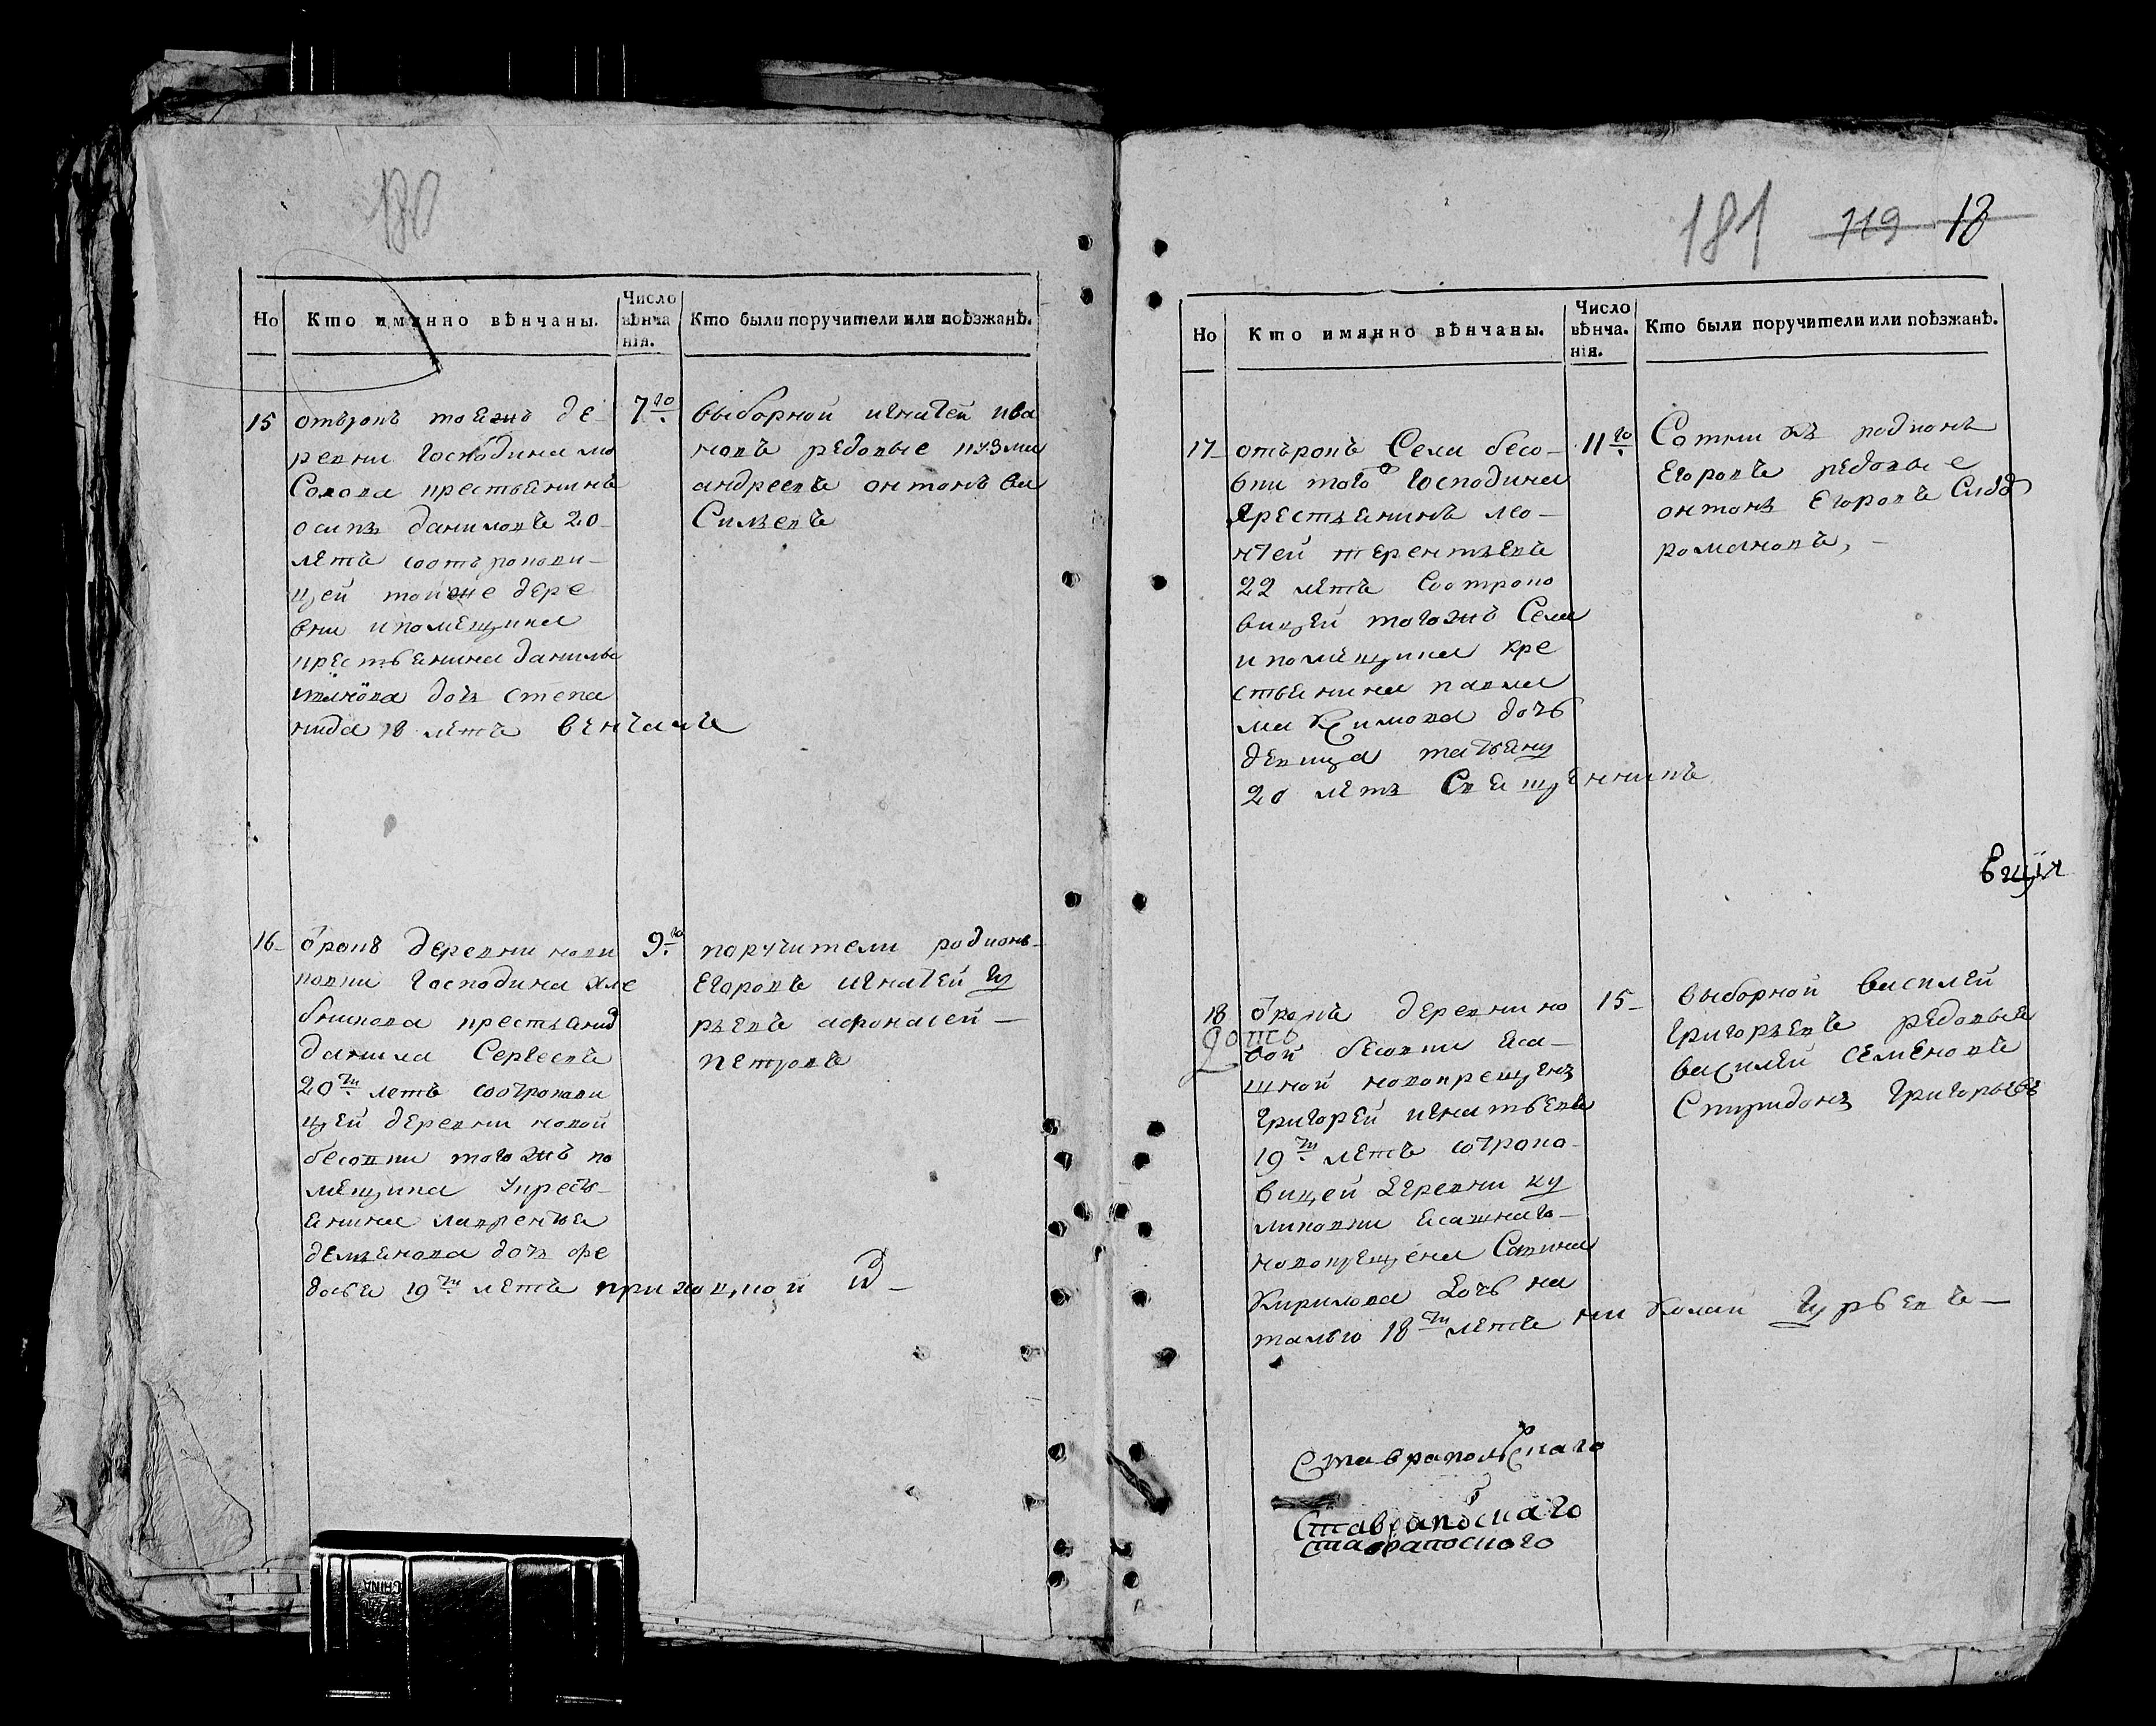 180
Но
Кто имянно вѣнчаны.
Число вѣнча нія.
Кто были поручители или поѣзжанѣ.
15 отърокъ тоежъ де
ревни Господина мо
Солова крестьянинъ
осипъ даниловъ 20
летъ соотърокови
цей тойже дере
вни ипомещика
крестьянина данилы
доч степа
нида 18 летъ венчалъ
7го
выборной игнатей ива
новъ редовые кузма
андреевъ онтонъ ва
Сильевъ
16 отрокъ деревни
Господина хле
бникова крестьянинъ
данила Сергеевъ
20ти летъ соотрокови
цей деревни новой
бесовки тогожъ по
мещика крест
янина лаврентья
демьянова доч фе
досья 19ти летъ приходской
9го
поручители родионъ
Егоровъ игнатей гу
рьевъ афонасей
петровъ
181 119 18
Но
Кто имянно вѣнчаны.
Число вѣнча. нія.
Кто были поручители или поѣзжанѣ.
17 отърокъ Села бесо
вки того Господина
крестьянинъ лео
нтей терентьевъ
22 летъ Соотроко
вицей тогожъ Села
ипомещика кре
стьянина павла
максимова дочь
девица татьяну
20 летъ Священникъ
11го
Сотникъ родионъ
Егоровъ редовые
онтонъ Егоровъ Сидо
романовъ,
18 отрокъ деревни но
вой бесовки яса
шной новокрещенъ
григорей игнатьевъ
19ти летъ сотроко
вицей деревни ку
ликовки ясашнаго
новокрещена Савина
Кирилова дочь на
талью 18ти летъ николай гурьевъ
15
выборной василей
григорьевъ редовые
василей семеновъ
Спиридонъ григорьевъ
Ставрапольскаго
Ставрапоскаго
ставрапоского